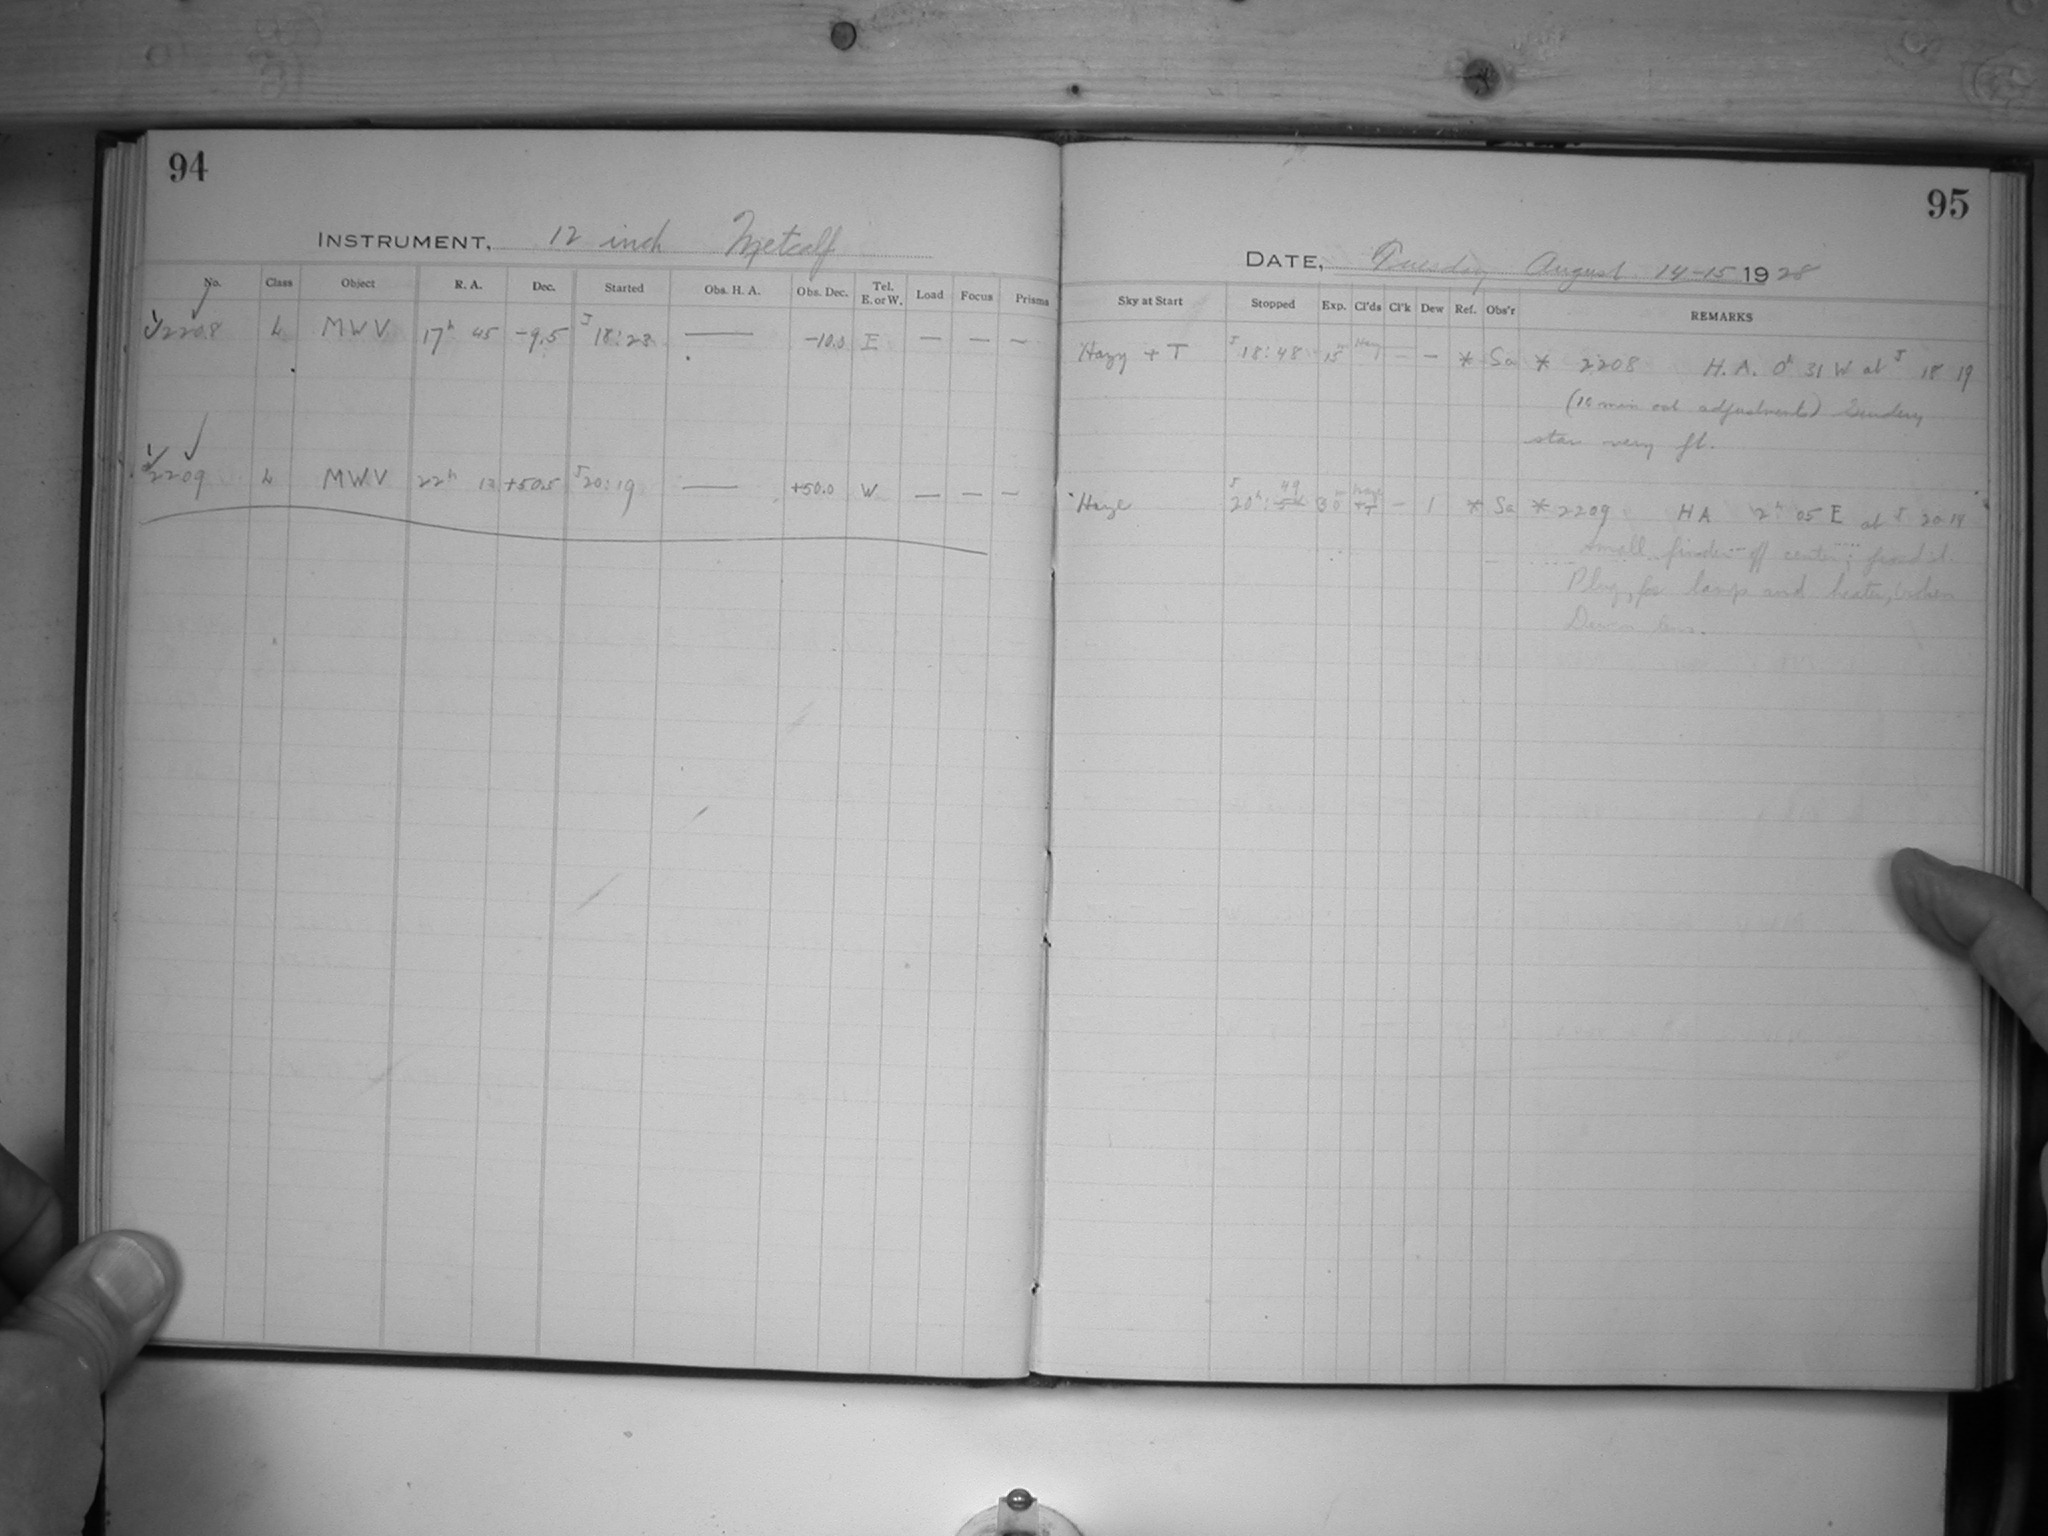 94
INSTRUMENT, 12 inch Metcalf
No. Class Object R. A. Dec. Started Obs. H. A. Obs. Dec. Tel. E. or W. Load Focus Prisms
2208 L MWV 17h 45 -9.5 J 18:23 — -10.0 E — — —
2209 L MWV 22h 13 +50.5 J 20:19 — +50.0 W — — —
95
DATE, Tuesday August 14-15 1928
Sky at Start Stopped Exp. Cl'ds Cl'k Dew Ref. Obs'r REMARKS
Hazy + T J 18:48 15m Hazy — — * Sa * 2208 H. A. 0h 31 W at J 18 19
(10 min out adjustment)
star very ft.
Haze J 20h: 49 30m Haze + T — 1 * Sa * 2209 HA 2h 05 E at J 20 14
Small finder off center; fixed it.
Plug for lamp and heater, broken
Dew on lens.